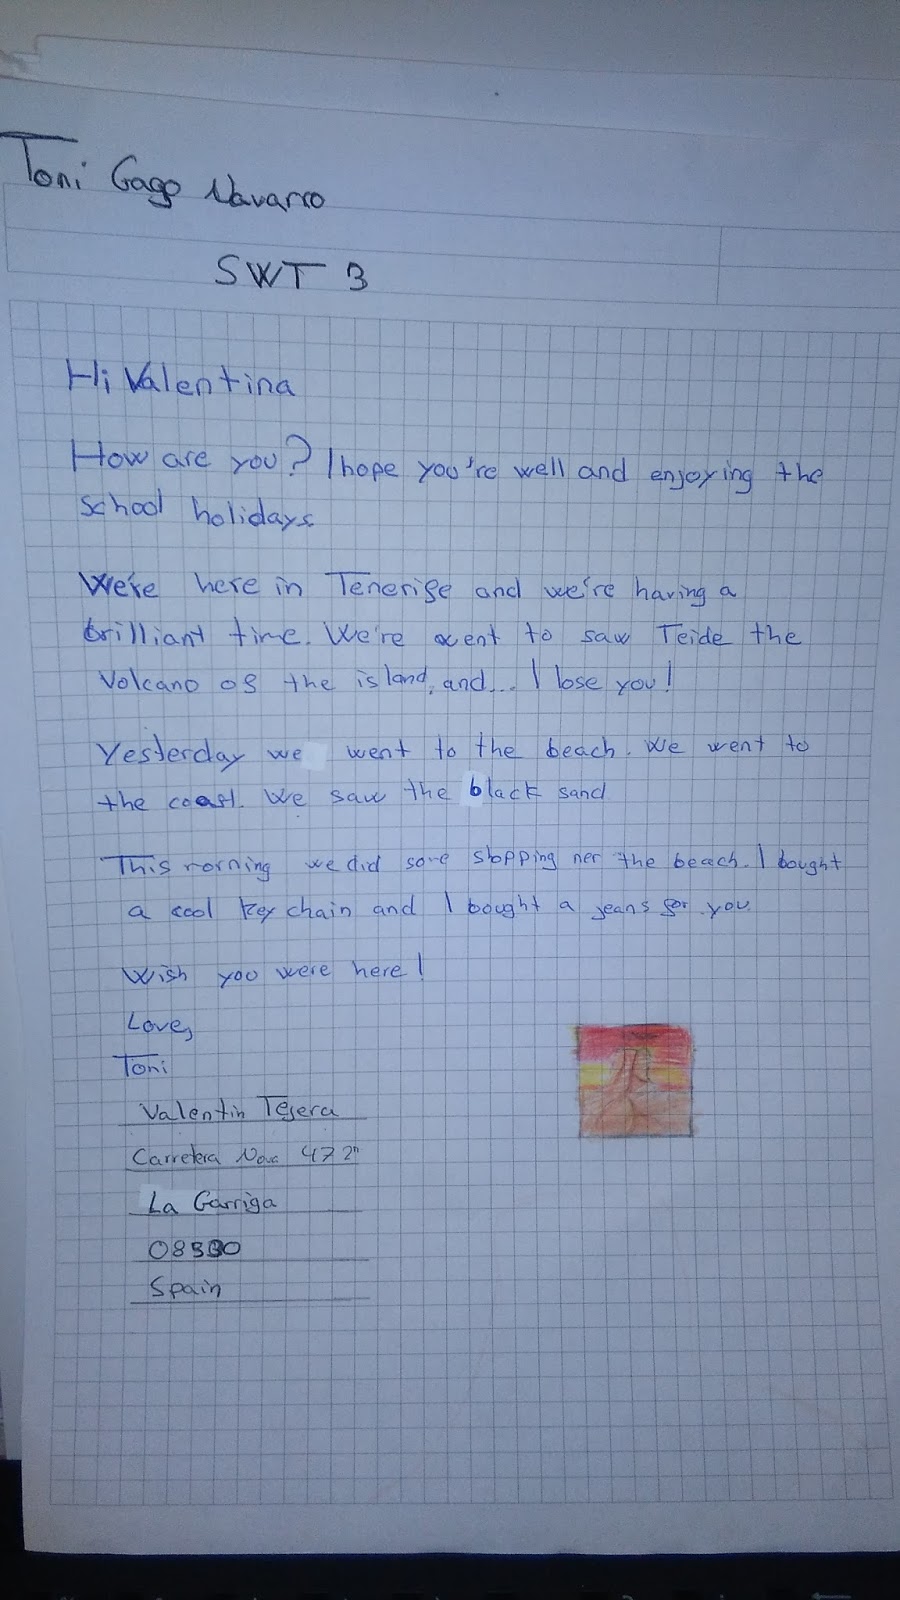 Toni Gago Navarro
SWT 3
Hi Valentina
How are you? I hope you're well and enjoying the
school holidays
We're here in Tenerife and we're having a
brilliant time. We're went to saw Teide the
Volcano of the island, and... I lose you!
Yesterday we went to the beach. We went to
the coast. We saw the black sand
This morning we did some shopping ner the beach. I bought
a cool key chain and I bought a jeans for you.
Wish you were here!
Love,
Toni
Valentin Tejera
Carretera Nova 47 2n
La Garriga
08530
Spain